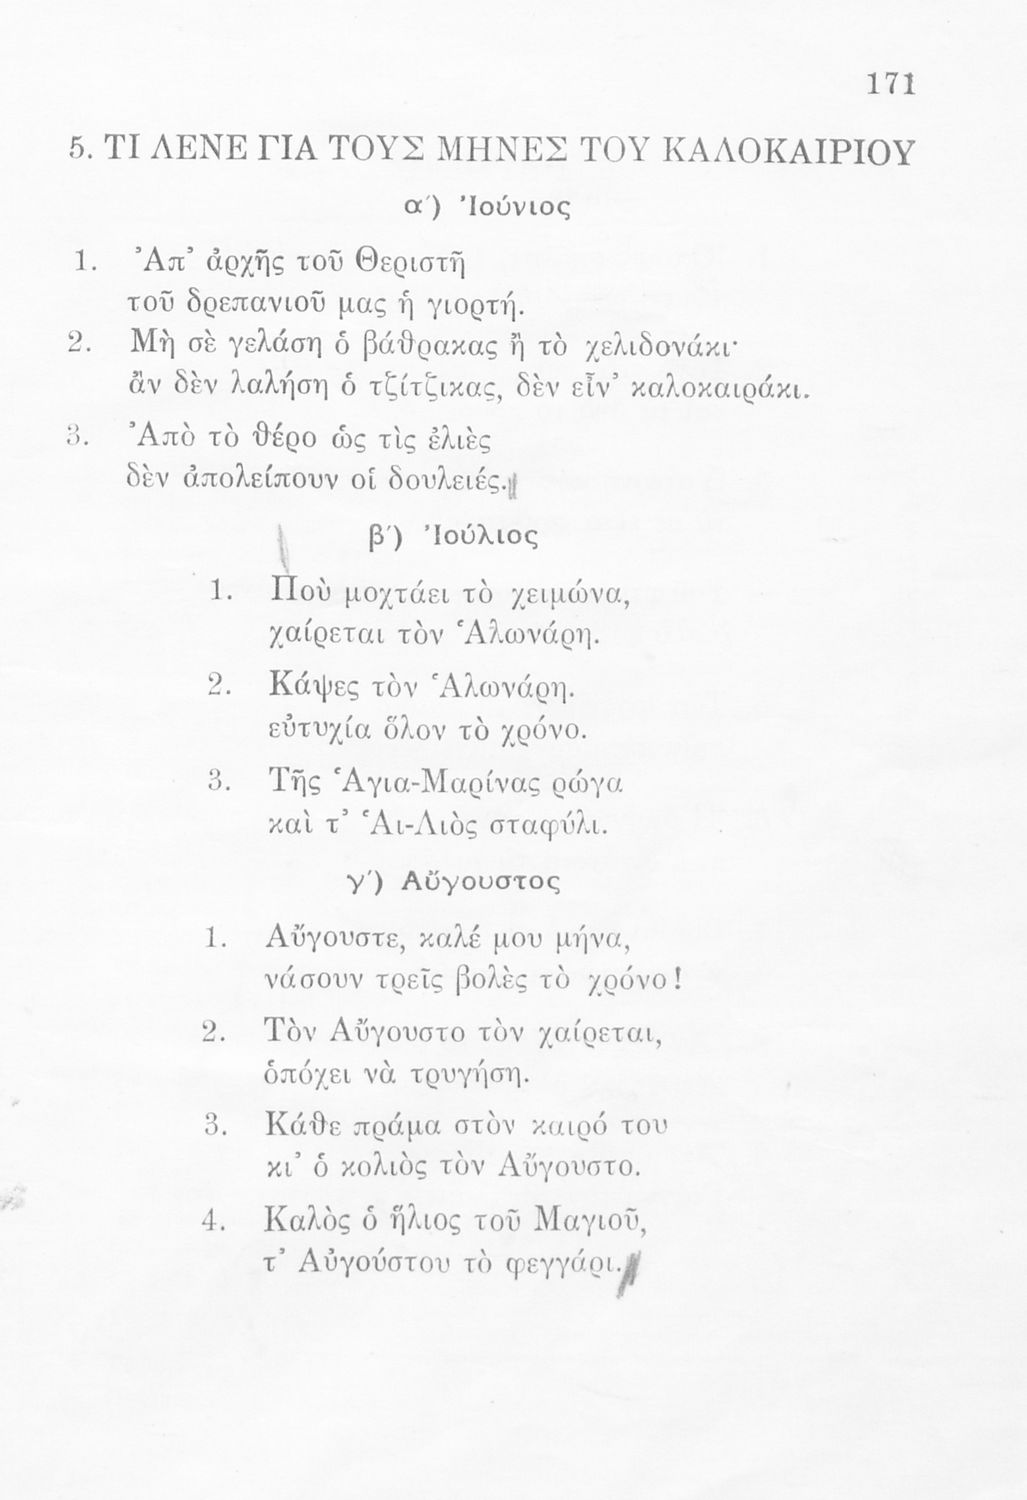 171
5. ΤΙ ΛΕΝΕ ΓΙΑ ΤΟΥΣ ΜΗΝΕΣ ΤΟΥ ΚΑΛΟΚΑΙΡΙΟΥ
α΄) Ἰούνιος
1. Ἀπ᾿ ἀρχῆς τοῦ Θεριστῆ
τοῦ δρεπανιοῦ μας ἡ γιορτή.
2. Μὴ σὲ γελάση ὁ βάθρακας ἢ τὸ χελιδονάκι·
ἂν δὲν λαλήση ὁ τζίτζικας, δὲν εἶν᾿ καλοκαιράκι.
3. Ἀπὸ τὸ θέρο ὡς τὶς ἐλιὲς
δὲν ἀπολείπουν οἱ δουλειές.
β΄) Ἰούλιος
1. Ποὺ μοχτάει τὸ χειμώνα,
χαίρεται τὸν Ἁλωνάρη.
2. Κάψες τὸν Ἁλωνάρη.
εὐτυχία ὅλον τὸ χρόνο.
3. Τῆς Ἁγια-Μαρίνας ρώγα
καὶ τ᾿ Ἁι-Λιὸς σταφύλι.
γ΄) Αὔγουστος
1. Αὔγουστε, καλέ μου μήνα,
νάσουν τρεῖς βολὲς τὸ χρόνο!
2. Τὸν Αὔγουστο τὸν χαίρεται,
ὁπόχει νὰ τρυγήση.
3. Κάθε πράμα στὸν καιρό του
κι᾿ ὁ κολιὸς τὸν Αὔγουστο.
4. Καλὸς ὁ ἥλιος τοῦ Μαγιοῦ,
τ᾿ Αὐγούστου τὸ φεγγάρι.